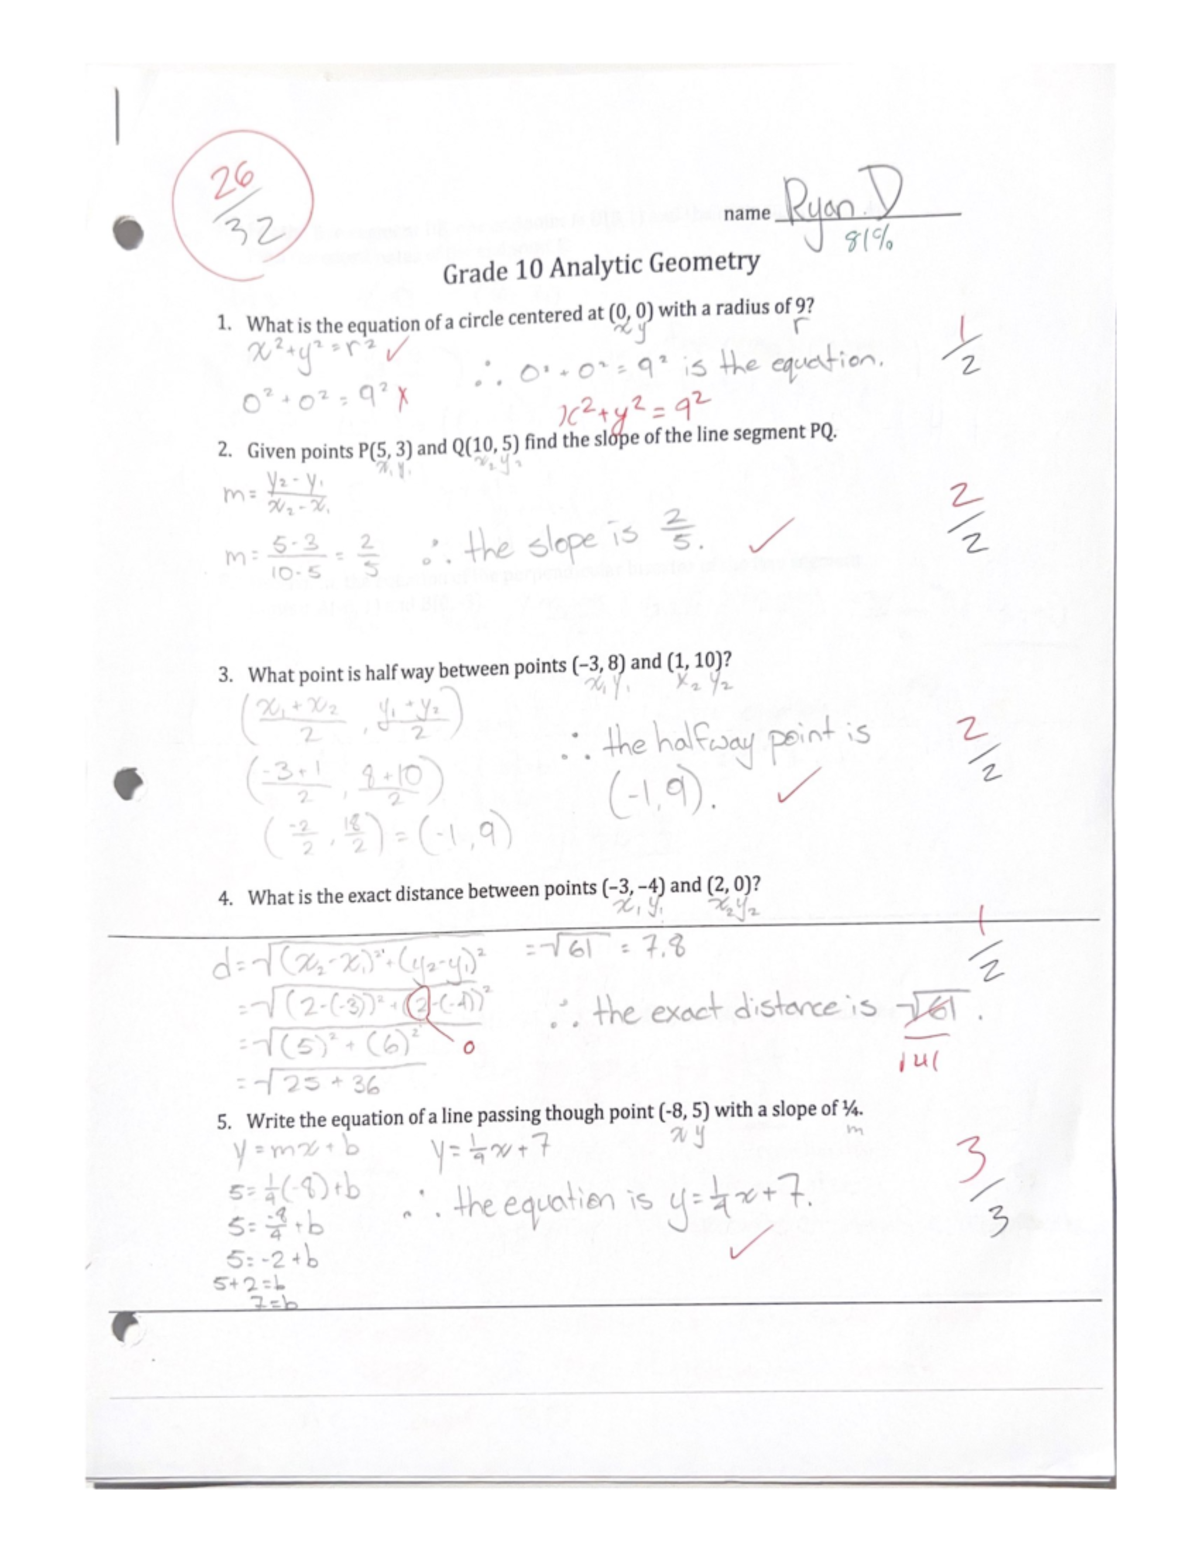 26
32
name Ryan.D
81%
Grade 10 Analytic Geometry
1. What is the equation of a circle centered at (0, 0) with a radius of 9?
x y r
x²+y²=r² ✓
0²+0²=9² ✗
∴ 0²+0²=9² is the equation.
x²+y²=9²
1/2
2. Given points P(5, 3) and Q(10, 5) find the slope of the line segment PQ.
x₁ y₁ x₂ y₂
m= y₂-y₁ / x₂-x₁
m= 5-3 / 10-5 = 2/5 ∴ the slope is 2/5. ✓
2/2
3. What point is half way between points (–3, 8) and (1, 10)?
x₁ y₁ x₂ y₂
(x₁+x₂ / 2, y₁+y₂ / 2)
(-3+1 / 2, 8+10 / 2)
(-2/2, 18/2) = (-1,9)
∴ the halfway point is
(-1,9). ✓
2/2
4. What is the exact distance between points (–3, –4) and (2, 0)?
x₁ y₁ x₂ y₂
d=√(x₂-x₁)²+(y₂-y₁)²
=√(2-(-3))²+(2-(-4))²
0
=√(5)²+(6)²
=√25+36
=√61 = 7.8
∴ the exact distance is √61.
√41
1/2
5. Write the equation of a line passing though point (-8, 5) with a slope of ¼.
x y m
y=mx+b
5=1/4(-8)+b
5=-8/4+b
5=-2+b
5+2=b
7=b
y=1/4x+7
∴ the equation is y=1/4x+7. ✓
3/3